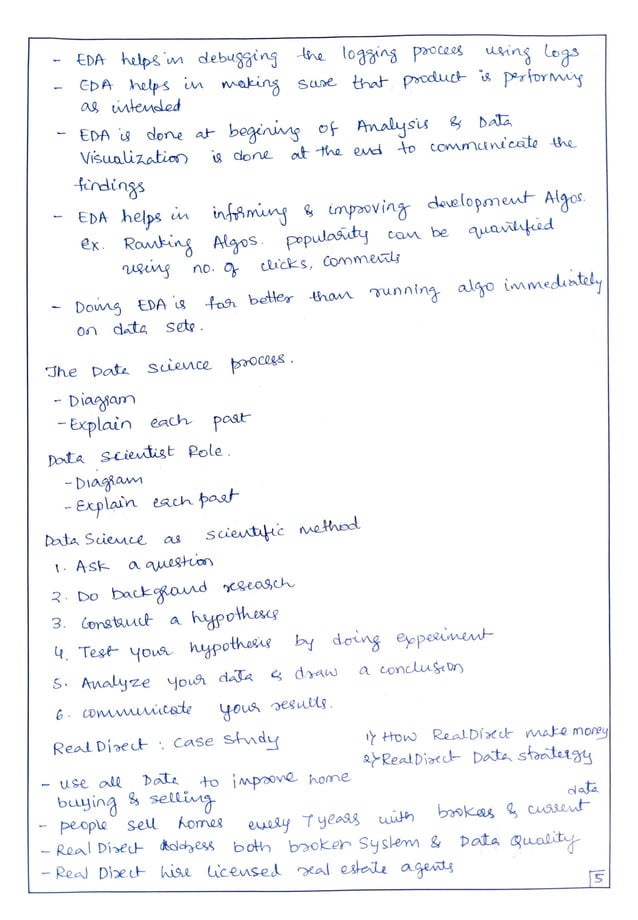 - EDA helps in debugging the logging process using logs
- EDA helps in making sure that product is performing
as intended
- EDA is done at begining of Analysis & Data
Visualization is done at the end to communicate the
findings
- EDA helps in informing & improving development Algos.
ex. Ranking Algos. popularity can be quantified
using no. of clicks, comments
- Doing EDA is far better than running algo immediately
on data sets.
The Data Science process.
- Diagram
- Explain each part
Data Scientist Role.
- Diagram
- Explain each part
Data Science as scientific method
1. Ask a question
2. Do backgraund research
3. Construct a hypothesis
4. Test your hypothesis by doing experiment
5. Analyze your data & draw a conclusion
6. communicate your results.
RealDirect : case study
1) How RealDirect make money
2) RealDirect Data stratergy
- use all Data to improve home
buying & selling
- people sell homes every 7 years with brokers & current data
- Real Direct Address both broker System & Data Quality
- Real Direct hire licensed real estate agents
5